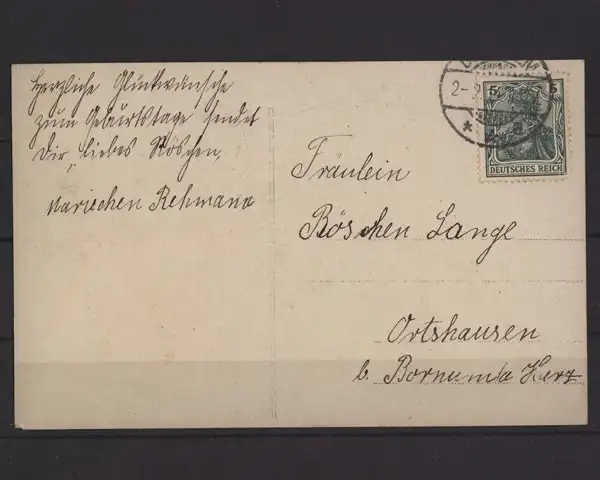 Herzliche Glückwünsche
zum Geburtstage sendet
Dir, liebes Röschen,
Mariechen Rehmann
5 5
DEUTSCHES REICH
2-
* a
Fräulein
Röschen Lange
Ortshausen
b. Bornum a Harz